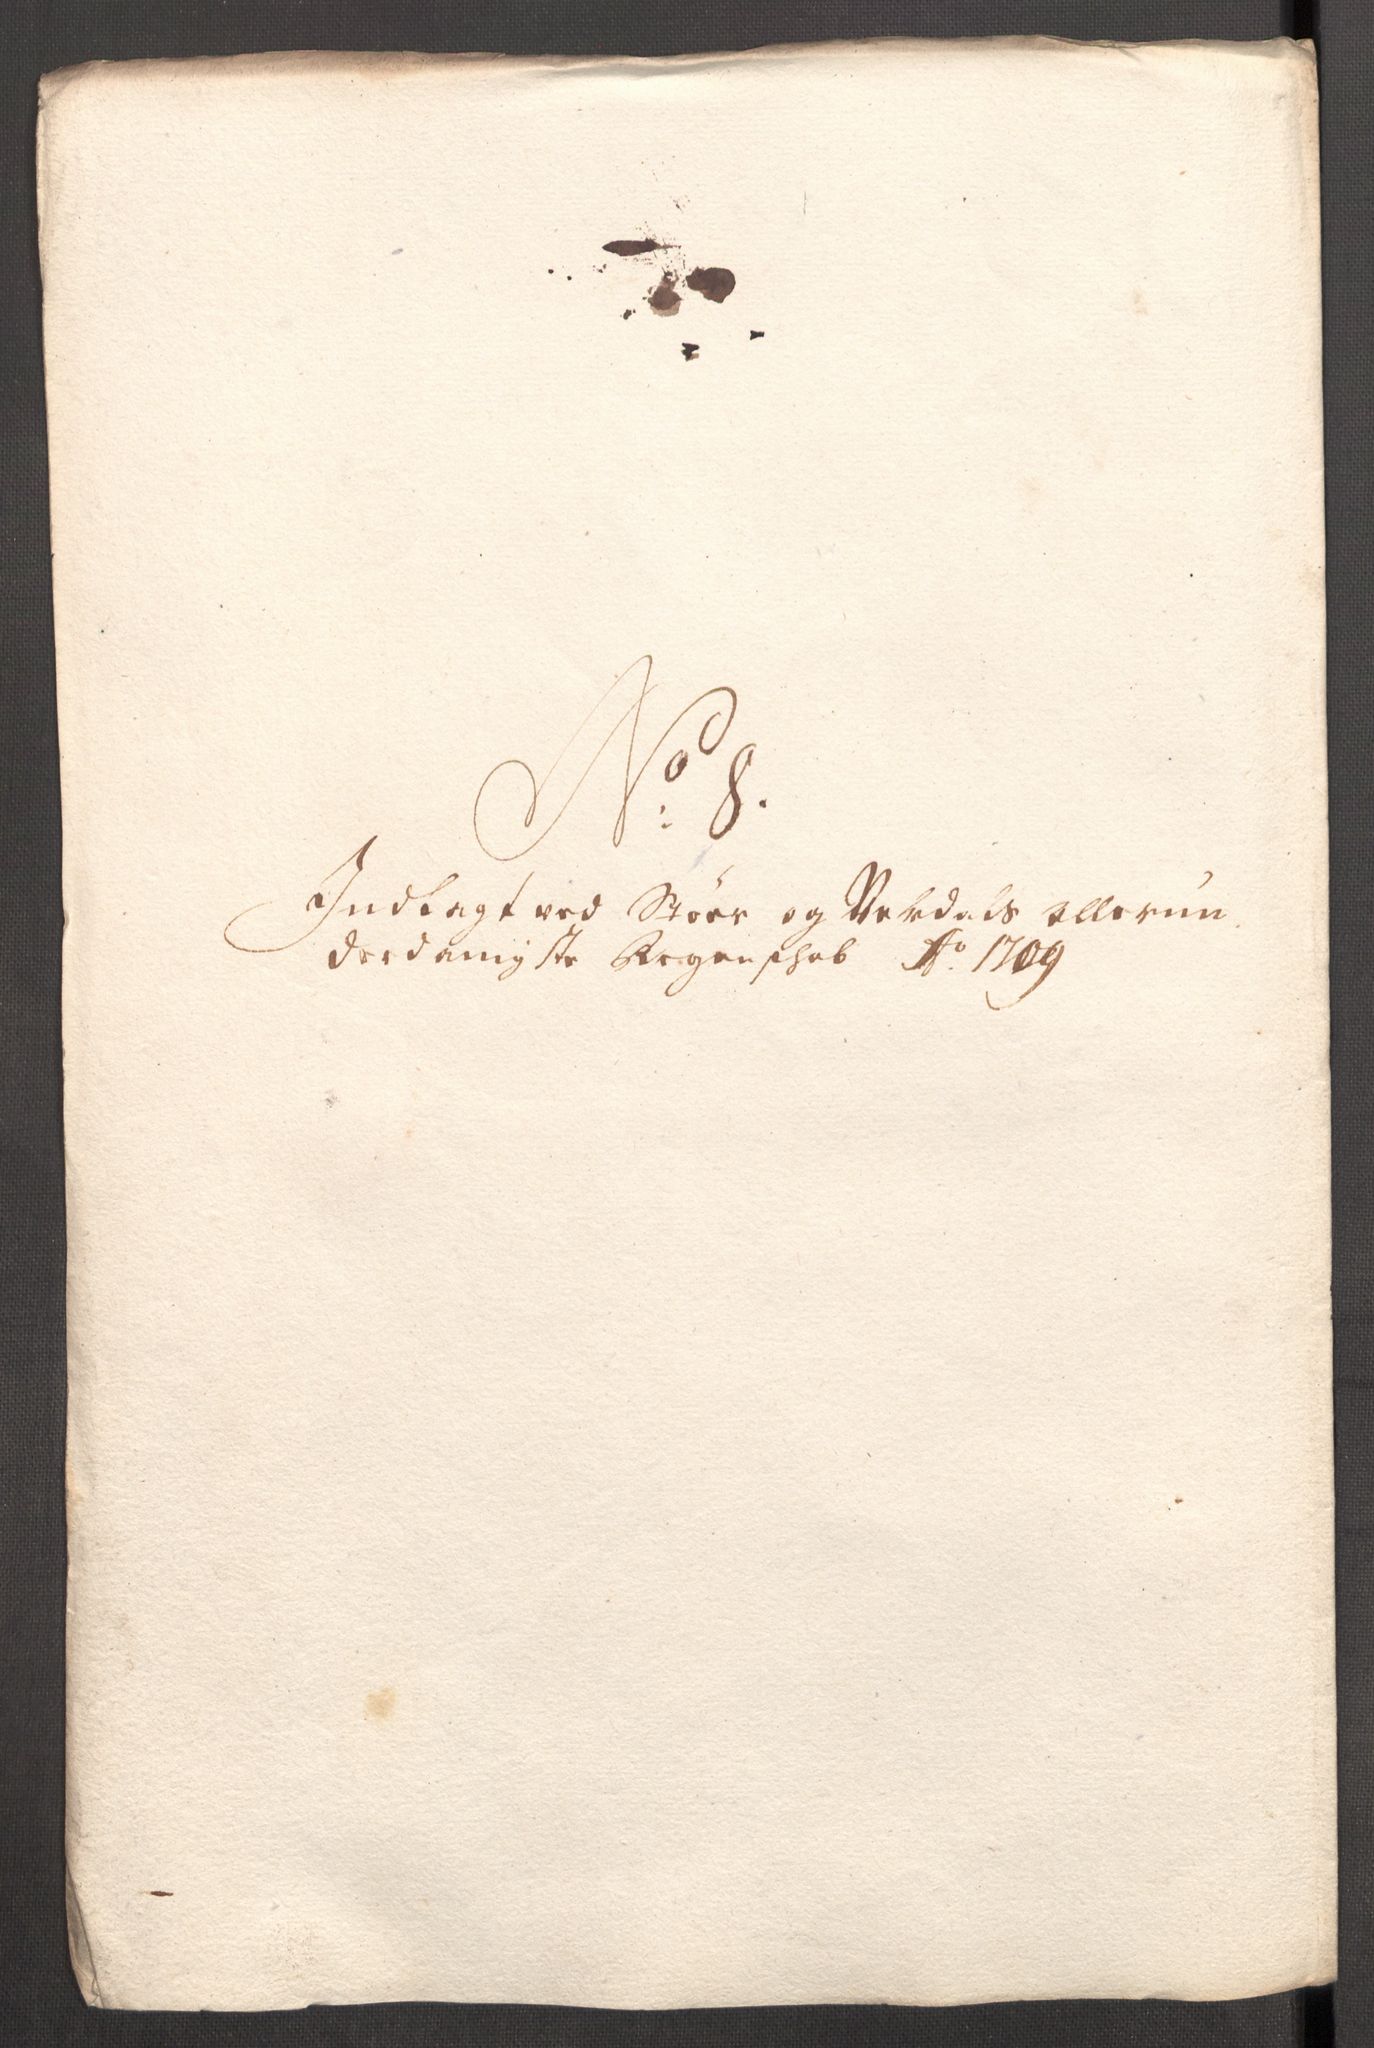 No: 8.
Indlagt ved Stöer og Verdals allerun
derdanigste Regenschab Ao. 1709